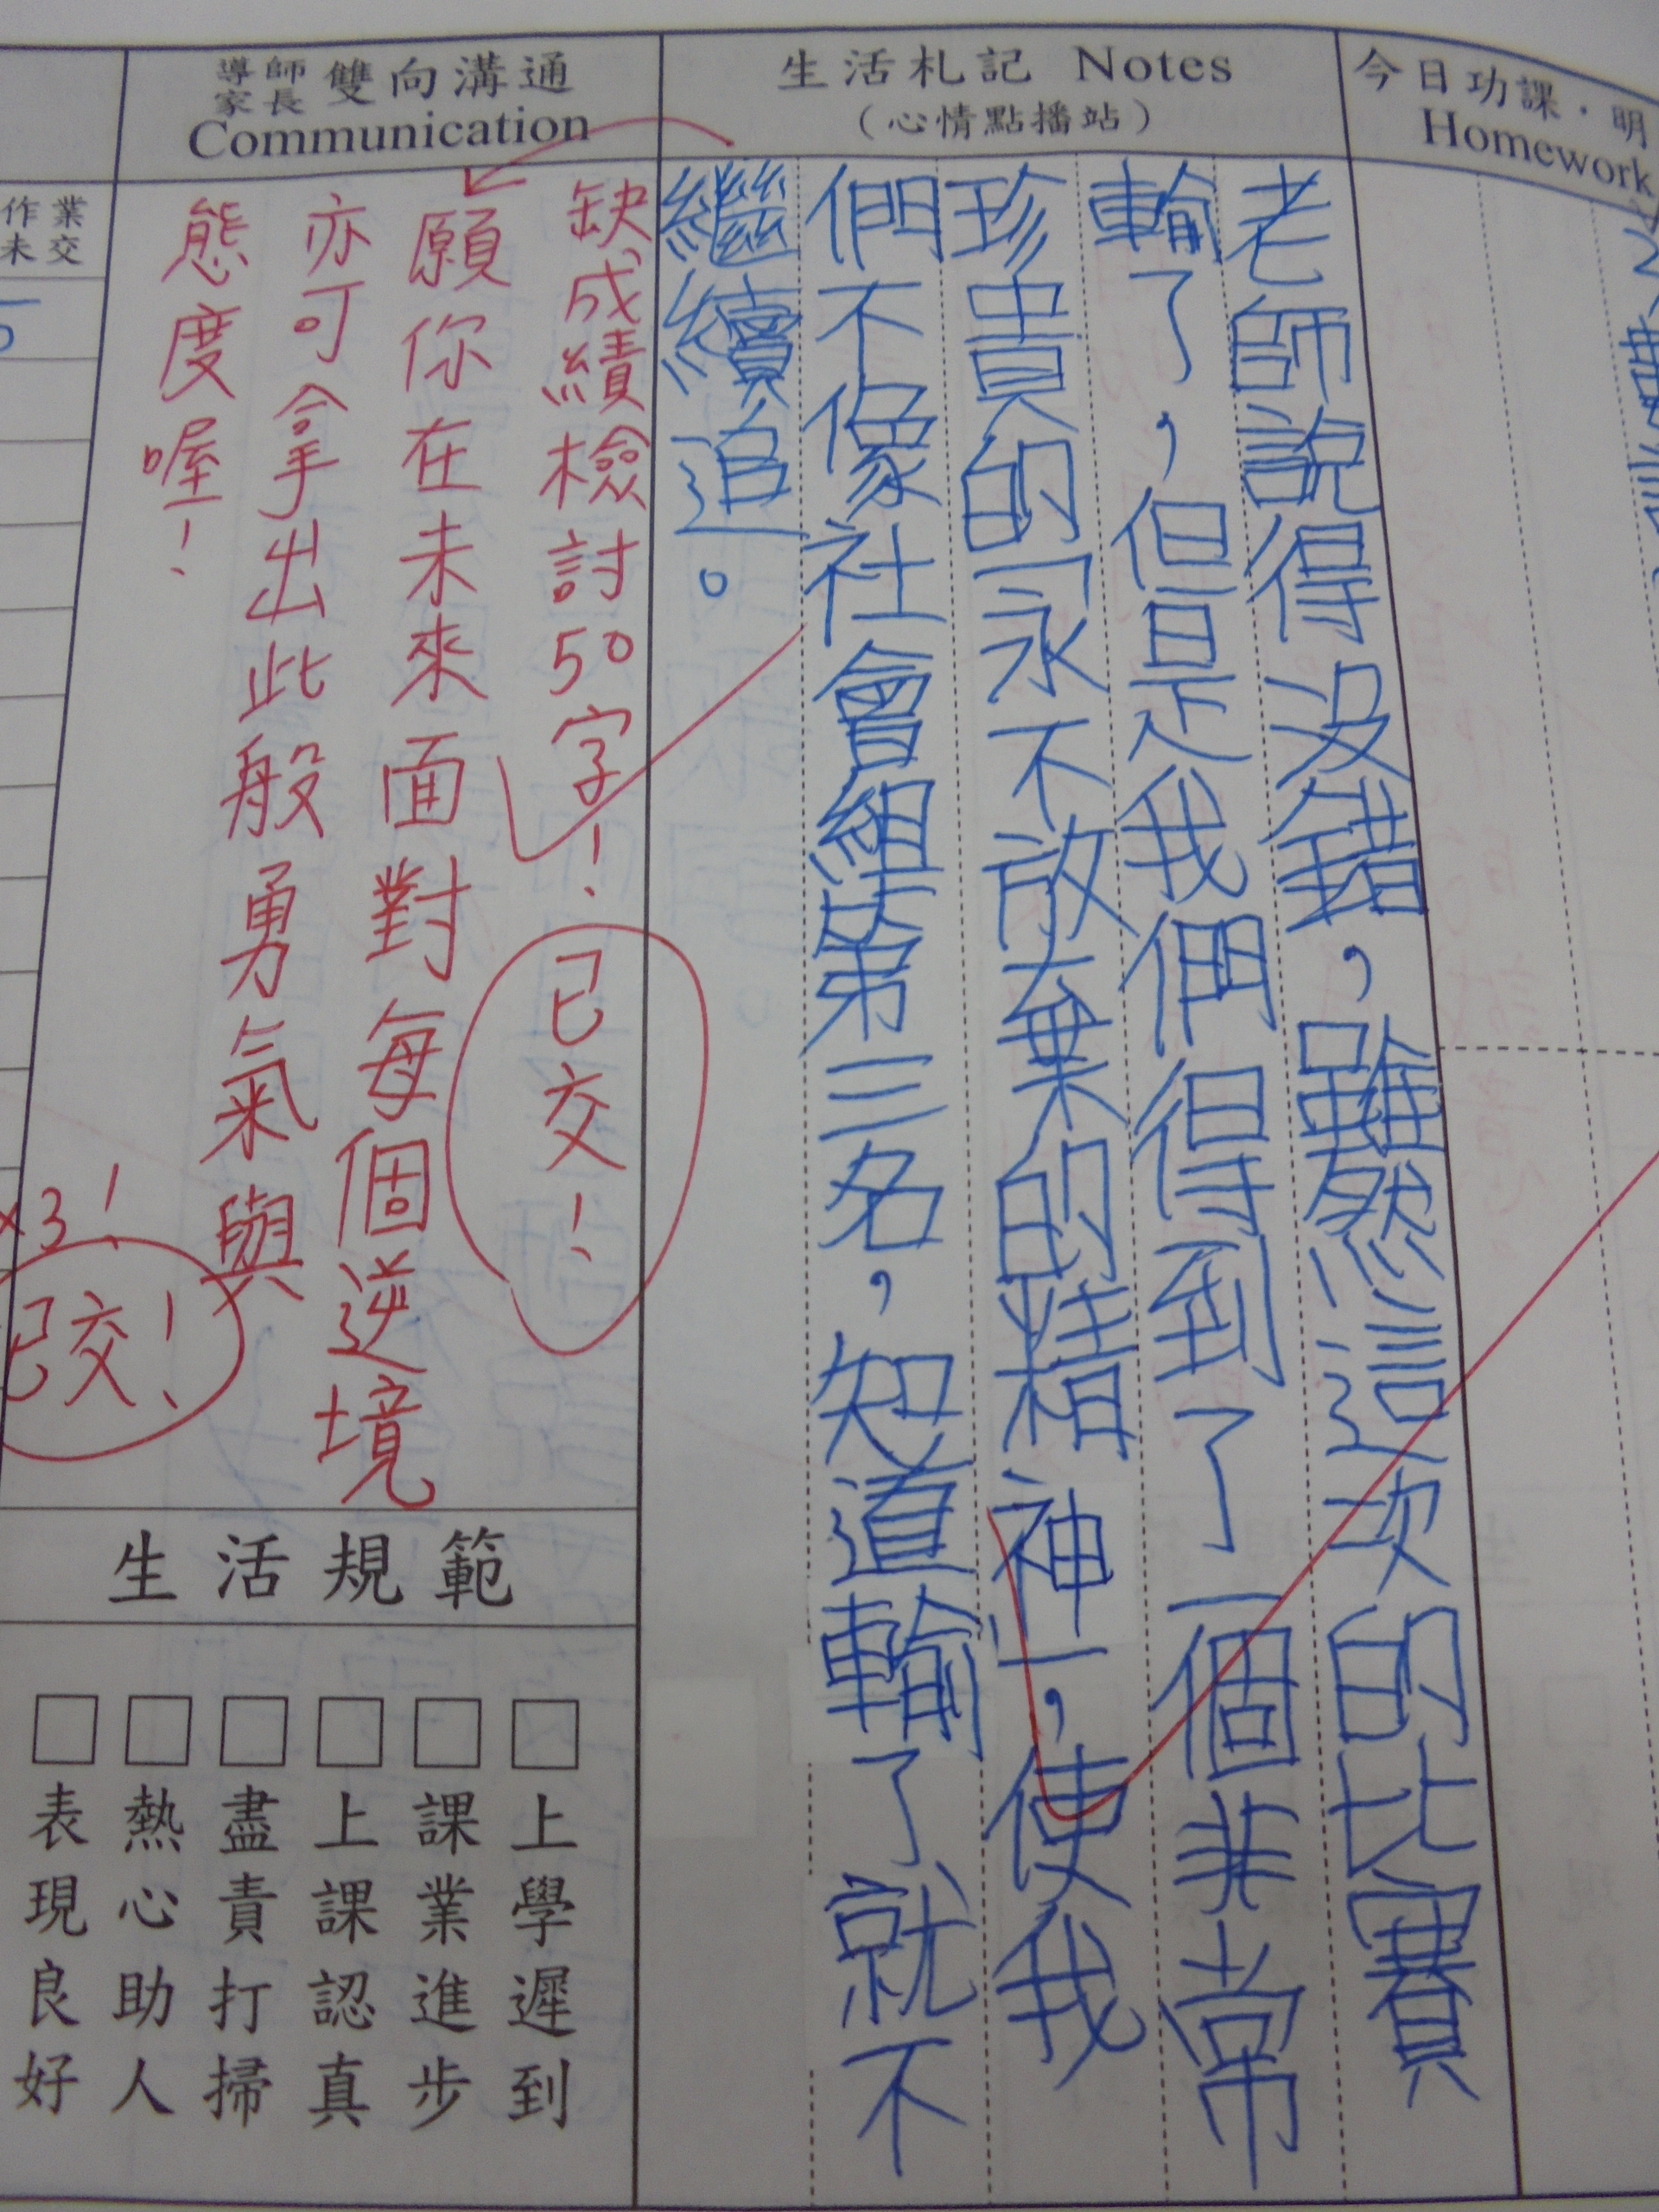 今日功課・明
Homework
生活札記 Notes
（心情點播站）
老師說得沒錯，雖然這次的比賽
輸了，但是我們得到了一個非常
珍貴的「永不放棄的精神」，使我
們不像社會組第三名，知道輸了就不
繼續追。
導師
家長
雙向溝通
Communication
缺成績檢討50字！
已交！
願你在未來面對每個逆境
亦可拿出此般勇氣與
態度喔！
作業
未交
x3！
已交！
生活規範
□上學遲到
□課業進步
□上課認真
□盡責打掃
□熱心助人
□表現良好